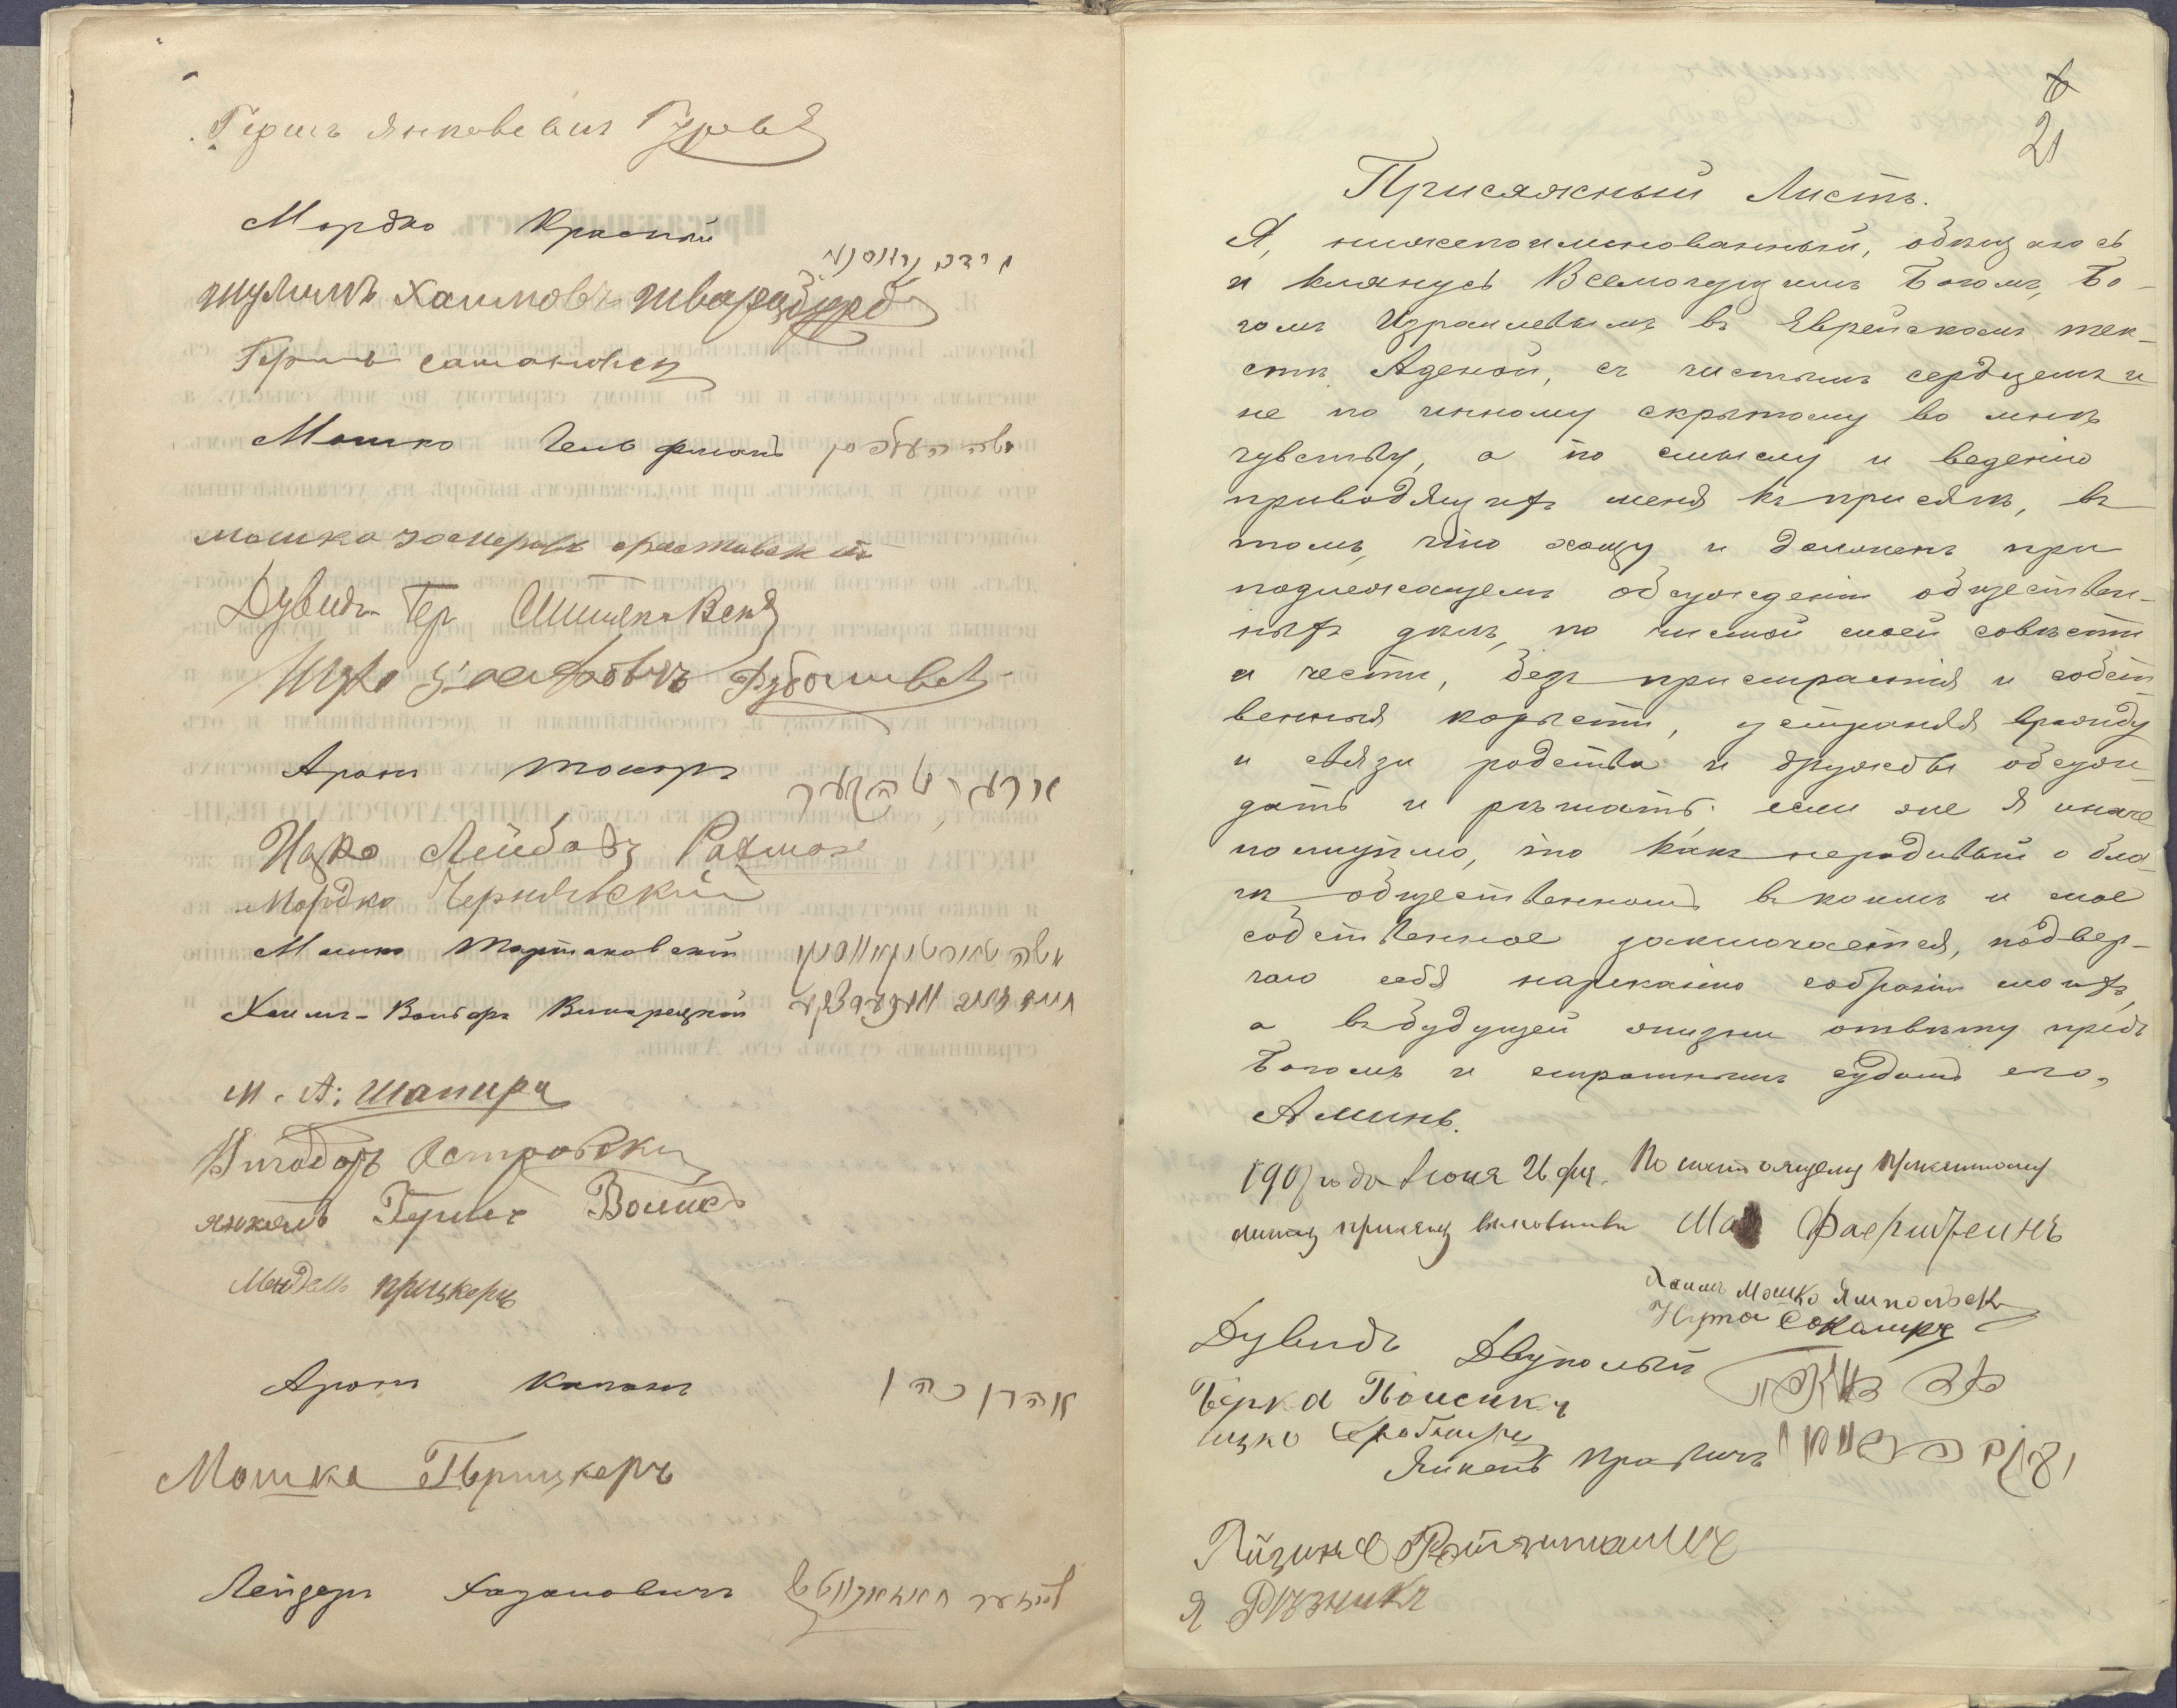 Гершъ Янкелевичъ Гуревъ
Мордко Красный
Шулимъ Хаимовъ Шварцбурдъ
Гершъ Сатановск
Мошко Гельфманъ משה העלפמן
Мошко Іосиповъ
Дувидъ Гер
Аронъ Токарь
Ицко Лейбовъ Рахман
Мордко Чернявскій
Мошко Тартаковскій משה טארטאקאווסקי
Хаимъ-Вольфъ Винарскій
М. А. Шапира
Вигодоръ Островски
Янкель Гершъ Волисъ
Мендель Прицкеръ
Аронъ Каганъ אהרן כהן
Мошка Прицкеръ
Лейзеръ Хазановичъ לייזער חאזאנאוויטש
21
Присяжный Листъ.
Я, нижепоименованный, обѣщаюсь
и клянусь Всемогущимъ Богомъ, Бо-
гомъ Израилевымъ въ Еврейскомъ тек-
стѣ Аденой, съ чистымъ сердцемъ и
не по инному скрытому во мнѣ
чувству, а по смыслу и веденію
приводящихъ меня къ присягѣ, въ
томъ, что хощу и долженъ при
подлежащемъ обсужденіи обществен-
ныхъ дѣлъ, по чистой моей совѣсти
и чести, безъ пристрастія и собст-
венныя корысти, устраняя вражду
и связи родства и дружбы обсуж-
дать и рѣшать: если же я иначе
поступлю, то какъ нерадивый о бла-
гѣ общественномъ въ коимъ и мое
собственное заключается, подвер-
гаю себя нареканію собратій моихъ,
а въ будущей жизни отвѣту предъ
Богомъ и страшнымъ судомъ его,
Аминь.
1907 года Іюня 26 дня. По настоящему присяжному
листу присягу выполнили Мо Фаерштеинъ
Хаимъ Мошко Ямпольск
Нута Сокалиръ
Дувидъ Двуполый
Берка Поисикъ
Ицко
Янкель Правичъ
Я Рѣзникъ